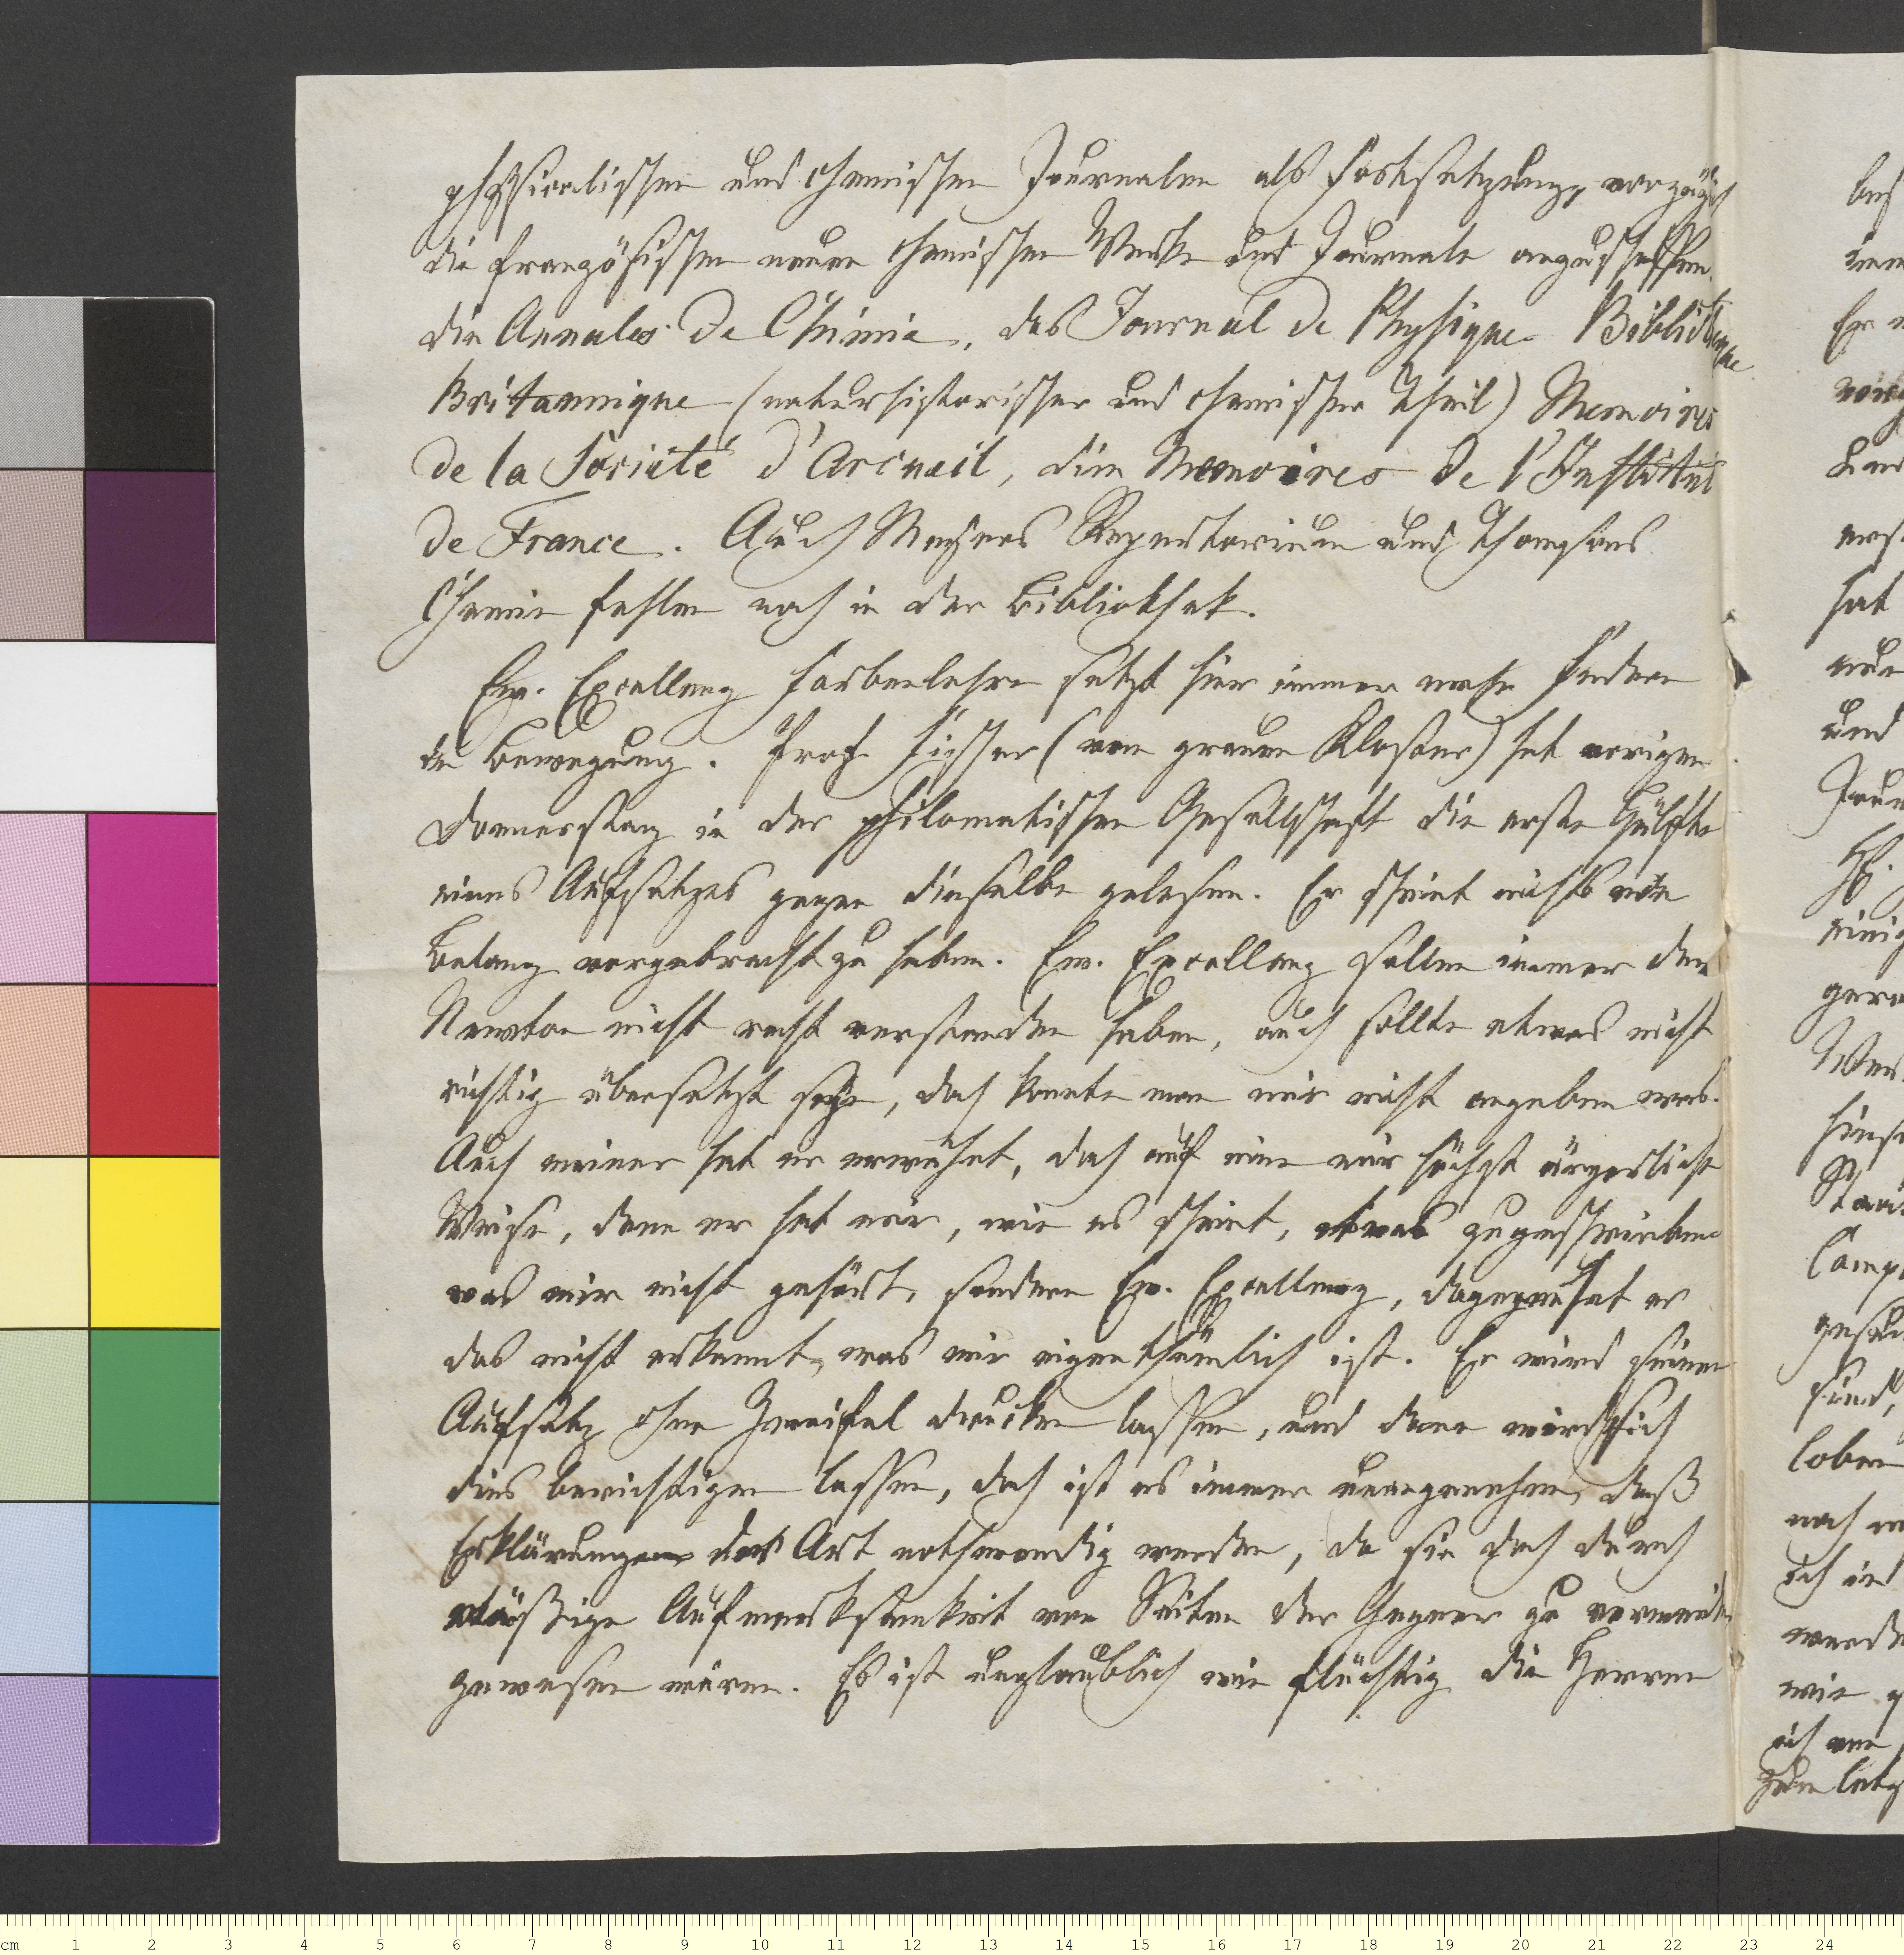 physicalischen und chemischen Journalen als Fortsetzung, vorzügl
die französischen neuen chemischen Werke und Journale anzuschaffen
die Annales de Chimie, das Journal de Physique Bibliotheque
Britannique (naturhistorischer und chemischer Theil) Memoires
de la Société d'Arcueil, die Memoires de l'Institut
de France. Auch Meyers Repertorium und Thomsons
Chemie fehlen noch in der Bibliothek.
Ew. Excellenz Farbenlehre setzt hier immer mehr Federn
in Bewegung. Prof. Fischer (vom grauen Kloster) hat vorigen
Donnerstag in der philomatischen Gesellschaft die erste Hälfte
eines Aufsatzes gegen dieselbe gelesen. Er scheint nichts von
Belang vorgebracht zu haben. Ew. Excellenz sollen immer den
Newton nicht recht verstanden haben, auch sollte etwas nicht
richtig übersetzt seyn, doch konnte man mir nicht angeben was.
Auch meiner hat er erwähnt, doch auf eine mir höchst ärgerliche
Weise, denn er hat mir, wie es scheint, etwas zugeschrieben
was mir nicht gehört, sondern Ew. Excellenz, dagegen hat er
das nicht erkannt, was mir eigenthümlich ist. Er wird seinen
Aufsatz ohne Zweifel drucken lassen, und dann wird sich
dies berichtigen lassen, doch ist es immer unangenehm, daß
Erklärungen der Art nothwendig werden, da sie doch durch
mäßige Aufmerksamkeit von Seiten der Gegner zu vermeiden
gewesen wären. Es ist unglaublich wie flüchtig die Herren
cm 1 2 3 4 5 6 7 8 9 10 11 12 13 14 15 16 17 18 19 20 21 22 23 24